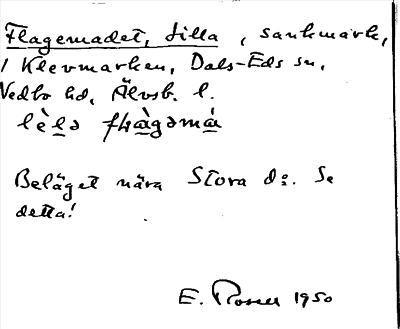 Flagemadet, Lilla, sankmark,
i Klevmarken, Dals-Eds sn,
Vedbo hd, Älvsb. l.
Beläget nära Stora d:o. Se
detta!
E. Rosell 1950